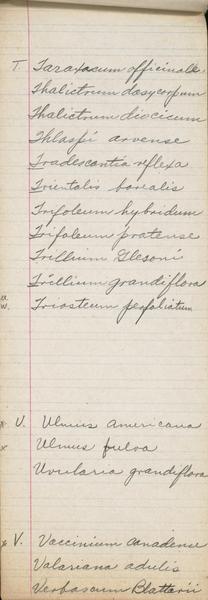 T. Taraxacum officinalle
Thalictrum dasycarpum
Thalictrum diocicum
Thlaspi arvense
Tradescantia reflexa
Trientalis borealis
Trifoleum hybridum
Trifoleum pratense
Trillium Glesoni
Trillium grandiflora
w. Triosteum perfoliatum
x U. Ulmus americana
x Ulmus fulva
Uvularia grandiflora
x V. Vaccinium canadense
Valariana adulis
Verbascum Blattarii